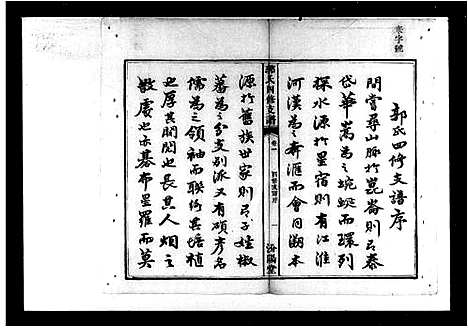 郭氏四修支譜序
間嘗尋山脈於崑崙則有泰
岱華嵩為之蜿蜒而環列
探水源於星宿則有江淮
河漢為之奔滙而會同溯本
郭氏四修支譜
卷一
四修支譜序
一
汾陽堂
源於舊族世家則有子姓椒
蕃為之分支別派又有碩彥名
儒為之領袖而聯伯其培植
也厚其閥閱也長其人烟之
散處也亦碁布星羅而莫